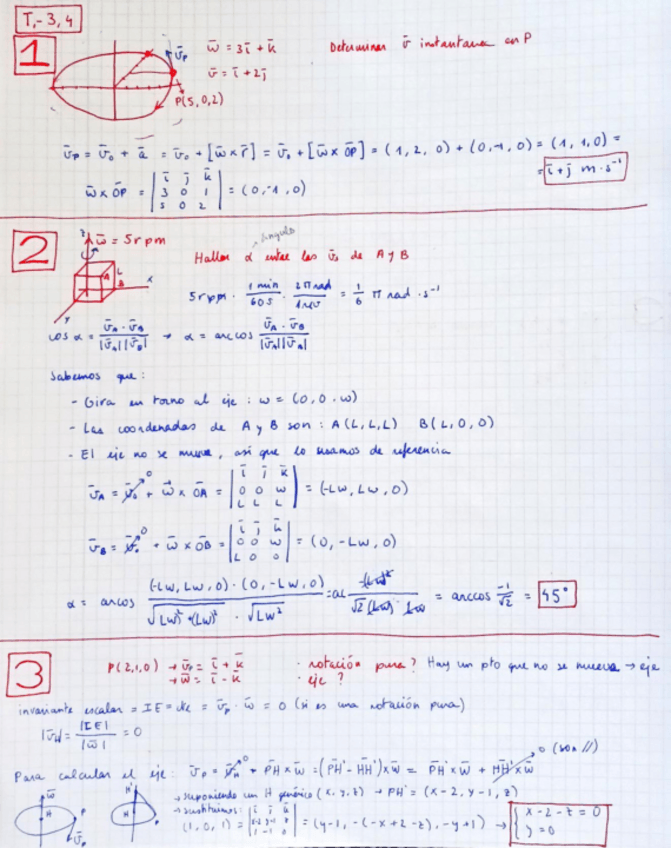 T.-3,4
1
v̄p
P(5,0,2)
w̄ = 3ī + k̄
v̄ = ī + 2j̄
Determinar v̄ instantanea en P
v̄p = v̄o + ā = v̄o + [w̄ × r̄] = v̄o + [w̄ × OP] = (1, 2, 0) + (0,-1, 0) = (1, 1, 0) =
= ī + j̄ m·s⁻¹
w̄ × OP = | ī j̄ k̄ | = (0,-1,0)
3 0 1
5 0 2
2
z w̄ = 5 rpm
A L B x y
ángulo
Hallar α entre las v̄s de A y B
5 rpm · 1 min/60 s · 2π rad/1 rev = 1/6 π rad · s⁻¹
cos α = v̄A · v̄B / |v̄A||v̄B| → α = arc cos v̄A · v̄B / |v̄A||v̄A|
Sabemos que:
- Gira en torno al eje : w = (0, 0, w)
- Las coordenadas de A y B son : A(L,L,L) B(L,0,0)
- El eje no se mueve, así que lo usamos de referencia
v̄A = v̄o⁰ + w̄ × OA = | ī j̄ k̄ | = (-Lw, Lw, 0)
0 0 w
L L L
v̄B = v̄o⁰ + w̄ × OB = | ī j̄ k̄ | = (0, -Lw, 0)
0 0 w
L 0 0
α = arcos (-Lw, Lw, 0) · (0, -Lw, 0) / √(Lw)² + (Lw)² · √Lw² = ac -(Lw)² / √2 (Lw) · Lw = arccos -1/√2 = 45°
3
P(2,1,0) → v̄p = ī + k̄
→ w̄ = ī - k̄
· rotación pura? Hay un pto que no se mueva → eje
· eje ?
invariante escalar = IE = cte = v̄p · w̄ = 0 (si es una rotación pura)
|v̄H| = |IE| / |w̄| = 0
Para calcular el eje : v̄p = v̄H⁰ + PH × w̄ = (PH' - HH') × w̄ = PH' × w̄ + HH' × w̄ 0 (son //)
→ suponiendo un H genérico (x, y, z) → PH' = (x-2, y-1, z)
→ sustituimos:
(1, 0, 1) = | ī j̄ k̄ | = (y-1, -(-x+2-z), -y+1) → { x - 2 - z = 0
x-2 y-1 z
1 -1 0
y = 0
w̄ H P v̄p
H' H P